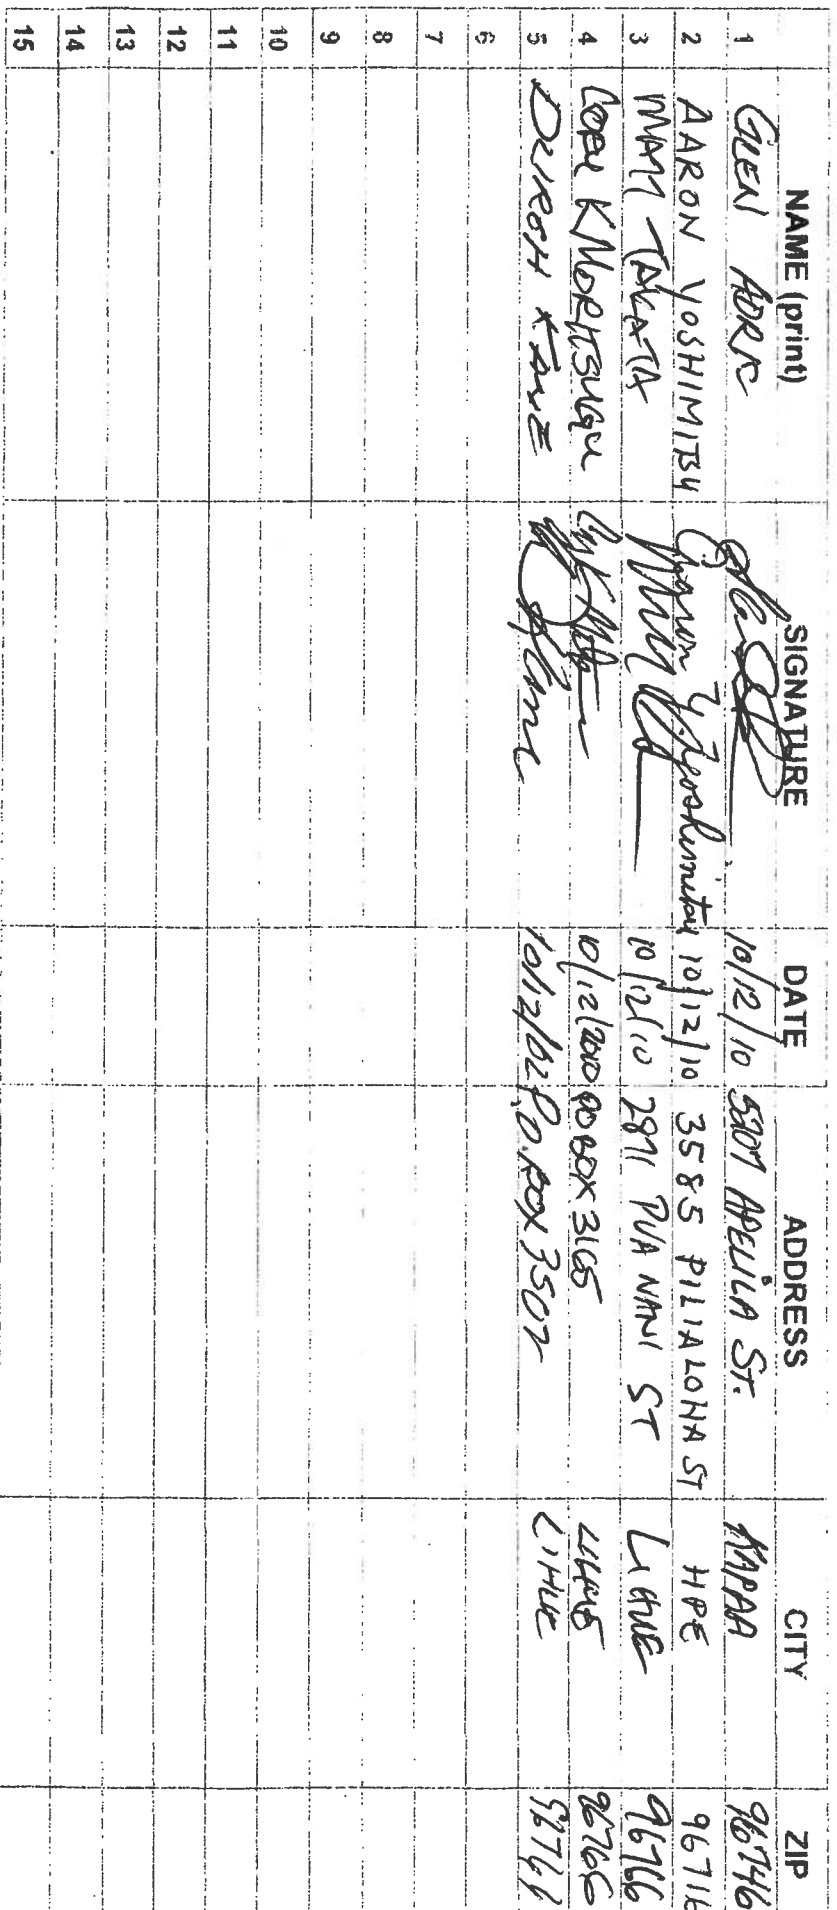 NAME (print) SIGNATURE DATE ADDRESS CITY ZIP
1 GLEN 10/12/10 5207 APELILA ST. KAPAA 96746
2 AARON YOSHIMITSU Aaron Y. Yoshimitsu 10/12/10 3585 PILIALOHA ST HPE 9671
3 TAKATA 10/12/10 2971 PUA NANI ST LIHUE 96766
4 K MORITSUGU 10/12/2010 PO BOX 3165 LIHUE 96766
5 10/12/ P.O. BOX 3502 LIHUE 96766
6
7
8
9
10
11
12
13
14
15